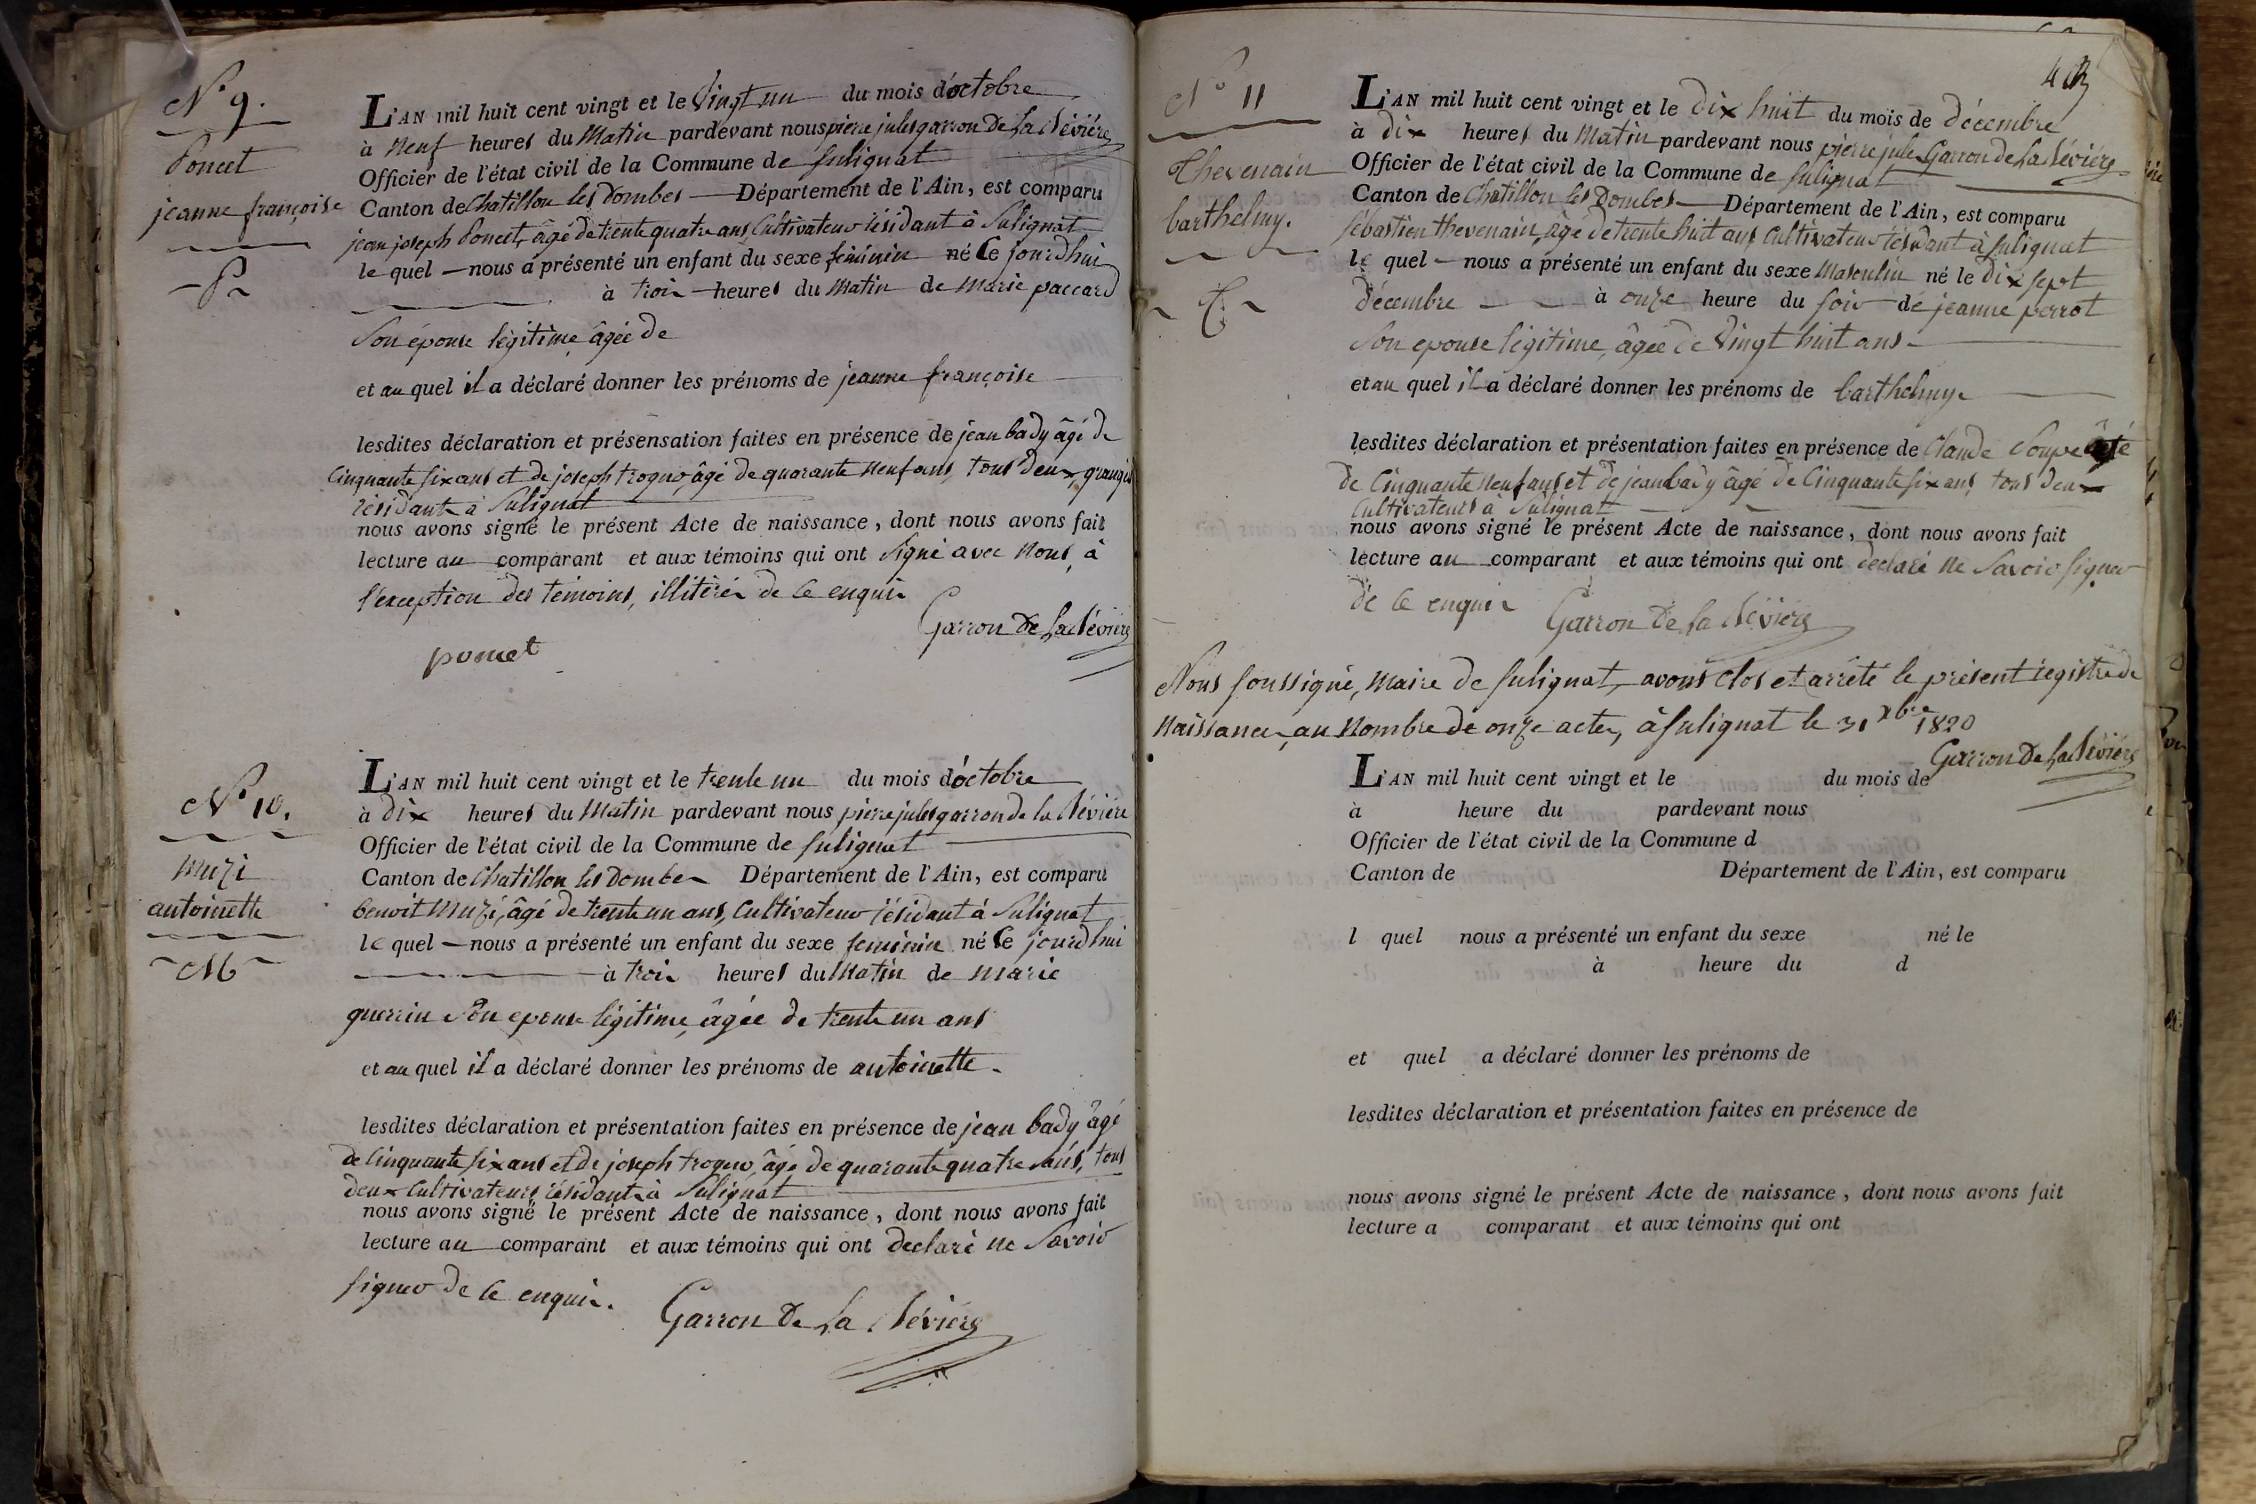 N° 9.
Poncet
jeanne françoise
P
L'AN mil huit cent vingt et le vingt un du mois d'octobre
à neuf heures du matin pardevant nous pierre jules garron De La Bévière
Officier de l'état civil de la Commune de Sulignat
Canton de Chatillon les Dombes Département de l'Ain, est comparu
jean joseph Poncet, âgé de trente quatre ans, Cultivateur résidant à Sulignat
le quel nous a présenté un enfant du sexe féminin né ce jourdhui
à trois heures du matin de marie paccard
Son épouse légitime, âgée de
et au quel il a déclaré donner les prénoms de jeanne françoise
lesdites déclaration et présensation faites en présence de jean bady âgé de
Cinquante six ans et de joseph trogno, âgé de quarante neuf ans, tous deux
résidants à Sulignat
nous avons signé le présent Acte de naissance, dont nous avons fait
lecture au comparant et aux témoins qui ont Signé avec Nous, à
l'exception des témoins, illitérés de ce enquis
Garron De La Bévière
poncet
N° 10.
Muzi
antoinette
M
L'AN mil huit cent vingt et le trente un du mois d'octobre
à dix heures du Matin pardevant nous pierre jules garron de la Bévière
Officier de l'état civil de la Commune de Sulignat
Canton de Chatillon les Dombes Département de l'Ain, est comparu
benoit Muzi, âgé de trente un ans, Cultivateur résidant à Sulignat
le quel nous a présenté un enfant du sexe feminin né Ce jourdhui
à trois heures du Matin de Marie
guerrin Son epouse légitime, âgée de trente un ans
et au quel il a déclaré donner les prénoms de antoinette.
lesdites déclaration et présentation faites en présence de jean bady âgé
de Cinquante six ans et de joseph trogno, âgé de quarante quatre ans, tous
deux Cultivateurs résidants à Sulignat
nous avons signé le présent Acte de naissance, dont nous avons fait
lecture au comparant et aux témoins qui ont declaré ne Savoir
signer de ce enquis.
Garron De La Bévière
N° 11
Thevenain
barthelmy.
T
L'AN mil huit cent vingt et le dix huit du mois de décembre
à dix heures du Matin pardevant nous pierre jules Garron de La Bévière
Officier de l'état civil de la Commune de Sulignat
Canton de Chatillon les Dombes Département de l'Ain, est comparu
Sébastien thevenain, âgé de trente huit ans Cultivateur résidant à Sulignat
le quel nous a présenté un enfant du sexe Masculin né le dix sept
décembre à onze heure du soir de jeanne perrot
Son epouse légitime, âgée de Vingt huit ans
et au quel il a déclaré donner les prénoms de barthelmy.
lesdites déclaration et présentation faites en présence de Claude Soupe âgé
de Cinquante neuf ans et de jean bady âgé de Cinquante six ans tous deux
Cultivateurs à Sulignat
nous avons signé le présent Acte de naissance, dont nous avons fait
lecture au comparant et aux témoins qui ont déclaré ne Savoir signer
de ce enquis
Garron De La Bévière
Nous soussigné, Maire de Sulignat, avons clos et arrêté le présent registre de
Naissance, au Nombre de onze actes, à Sulignat le 31 xbre 1820
Garron De La Bévière
L'AN mil huit cent vingt et le du mois de
à heure du pardevant nous
Officier de l'état civil de la Commune d
Canton de Département de l'Ain, est comparu
l quel nous a présenté un enfant du sexe né le
à heure du d
et quel a déclaré donner les prénoms de
lesdites déclaration et présentation faites en présence de
nous avons signé le présent Acte de naissance, dont nous avons fait
lecture a comparant et aux témoins qui ont